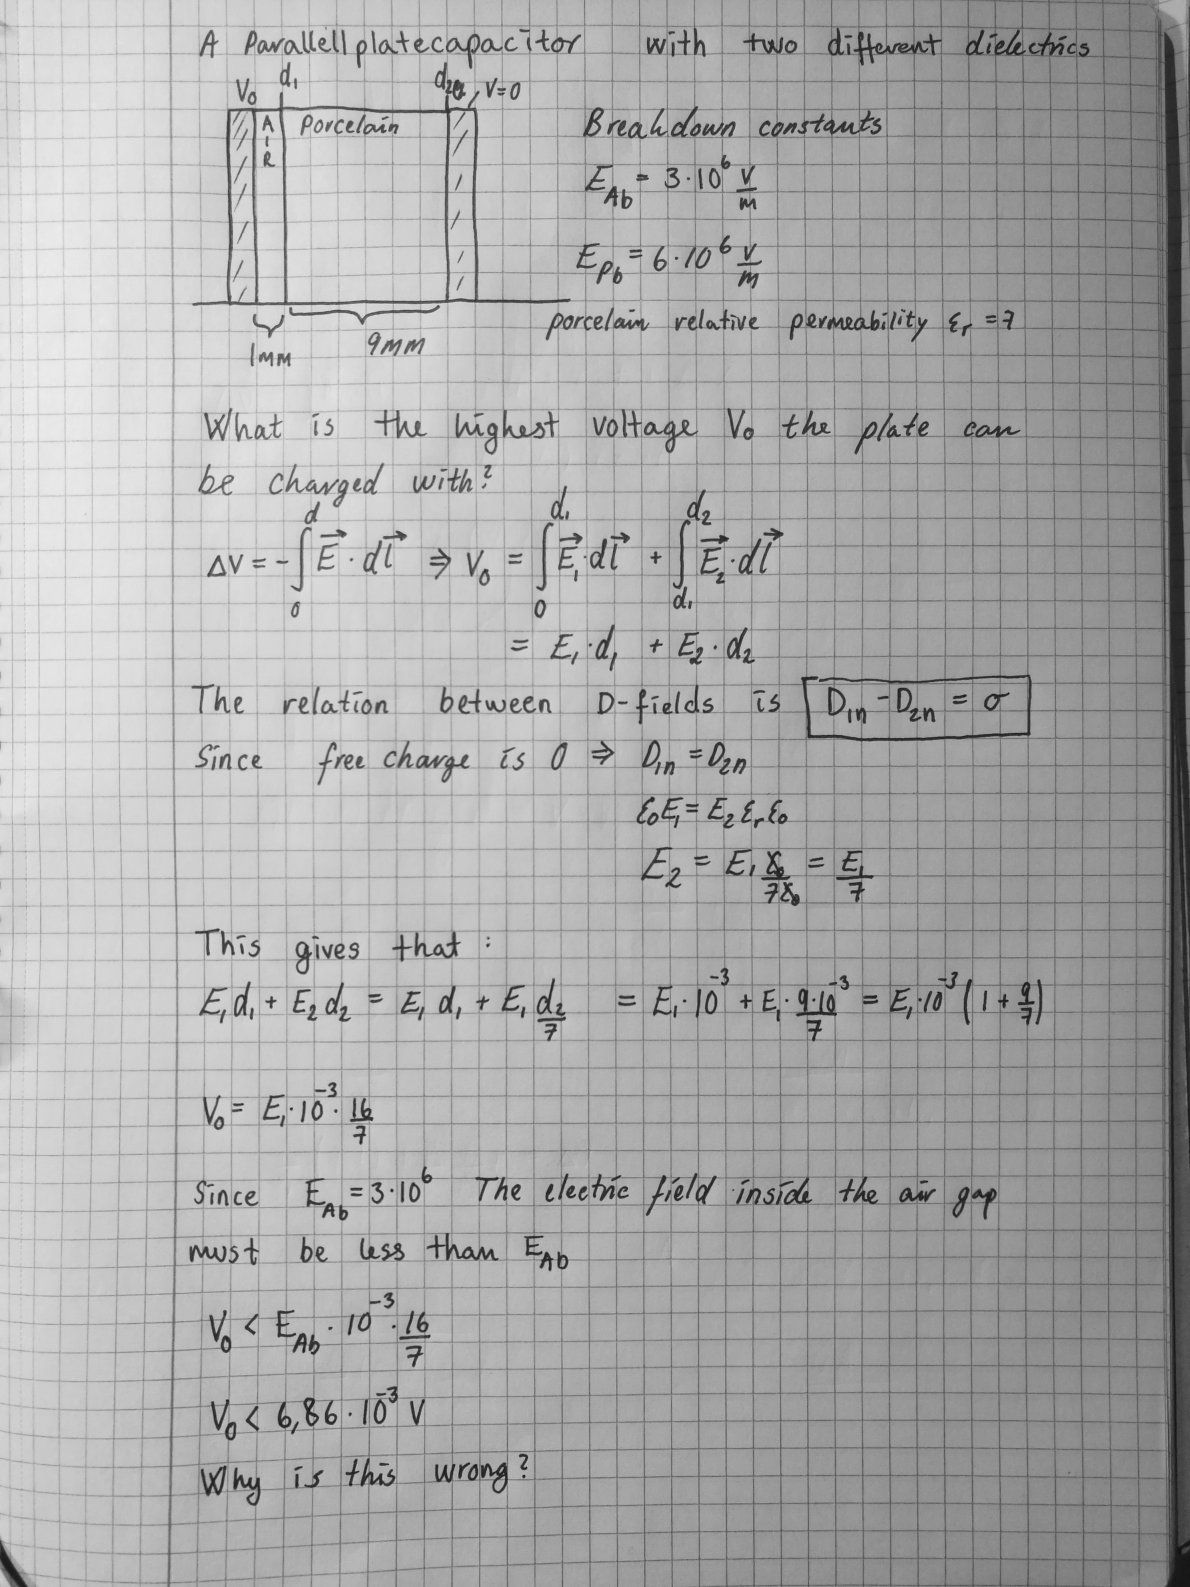 A Parallellplatecapacitor with two different dielectrics
V₀ d₁ d₂ V=0
AIR Porcelain
Breakdown constants
E_Ab = 3·10⁶ V/m
E_Pb = 6·10⁶ V/m
porcelain relative permeability ε_r = 7
1mm 9mm
What is the highest voltage V₀ the plate can
be charged with?
ΔV = -∫₀^d E⃗ · dl⃗ ⇒ V₀ = ∫₀^d₁ E⃗₁·dl⃗ + ∫_d₁^d₂ E⃗₂·dl⃗
= E₁·d₁ + E₂·d₂
The relation between D-fields is D₁n - D₂n = σ
Since free charge is 0 ⇒ D₁n = D₂n
ε₀E₁ = E₂ε_rε₀
E₂ = E₁ ε₀/7ε₀ = E₁/7
This gives that :
E₁d₁ + E₂d₂ = E₁d₁ + E₁ d₂/7 = E₁·10⁻³ + E₁· 9·10⁻³/7 = E₁·10⁻³ (1 + 9/7)
V₀ = E₁·10⁻³· 16/7
Since E_Ab = 3·10⁶ The electric field inside the air gap
must be less than E_Ab
V₀ < E_Ab · 10⁻³ · 16/7
V₀ < 6,86·10⁻³ V
Why is this wrong?